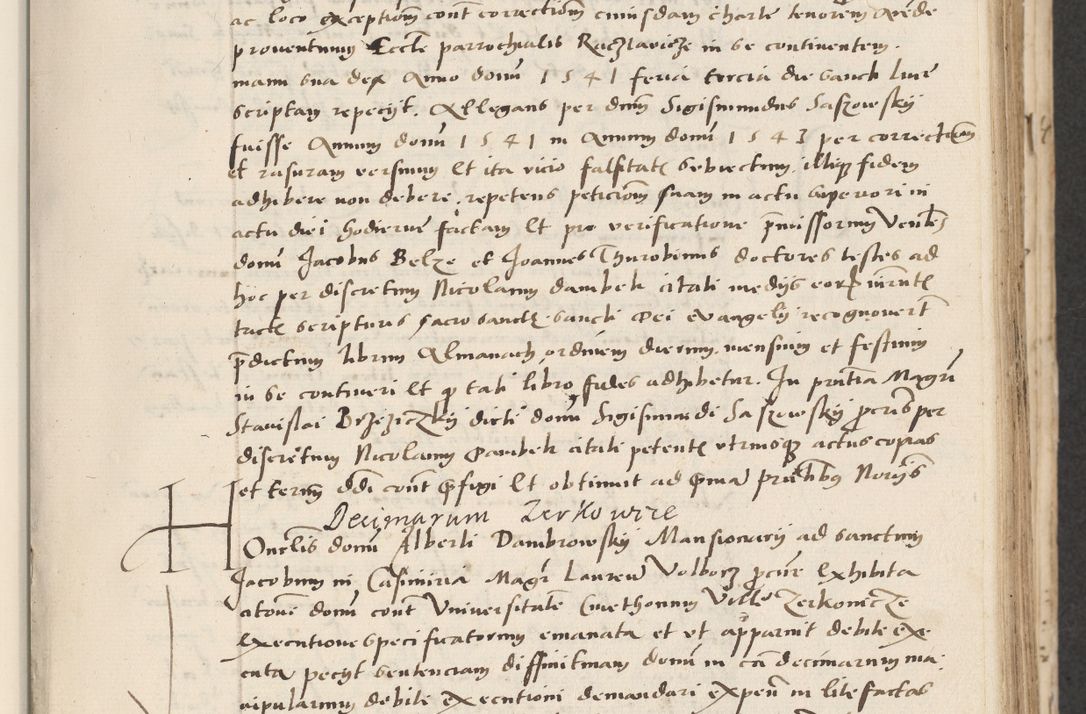 ac loco exceptiom cont correctiom cuiusdam charte tenorem
proventuum Eccle parrochialis Raczlavicze in se continentem.
manu sua de Anno domi 1541 feria tercia die sancte Lucie
scriptam repecyt. Allegans per dum Sigismundus Saszowsky
fuisse Annum domi 1541 in Annum domi 1543 per correctiom
et rasuram versum Et ita vicio falsitatis subiectum, illique fidem
adhibere non debere, repetens peticiom suam in actu superiori in
actu diei hodierne factam Et pro verificatione pmissorum Venles
domi Jacobus Belze et Joannes Thurobinus doctores testes ad
hoc per discretum Nicolaum dambek citati medys eor iurate
tactis scripturis sacrosanctis sancti Dei evangely recognovert
pdictum librum Almanach, ordinem dierum, mensium et festium
in se contineri Et q tali libro fides adhibetur. In pntia Magri
Stanislai Brzeziczky dicti domi Sigismundi Saszowsky pcuris per
discretum Nicolaum Dambek citati petente utriusque actus copias
et termi ddi cont pfigi Et obtinuit ad pma pntibus Norys
Decimarum Zerkowcze
Honelis domi Alberti Dambrowsky Mansionary ad sanctum
Jacobum in Casimiria Magr Laurens Volborz pcure Exhibita
citoue domi cont Universitate Cmethonum Ville Zerkowicze
Executione specificatorum emanata et ut apparuit debite exe
cuta pecyt sentenciam diffinitivam domi in ca decimarum ma
nipularium debite Executioni demandari expen in lite factas